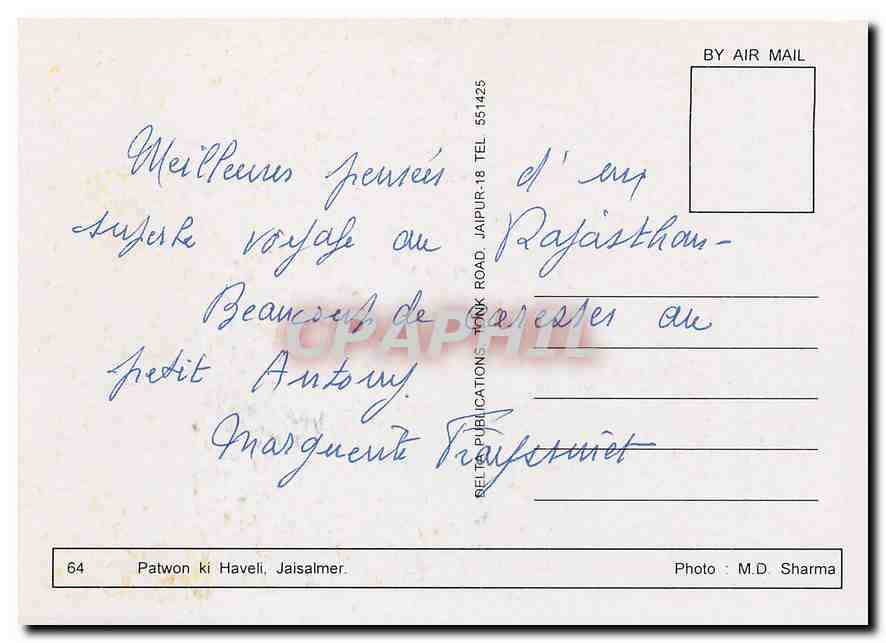 BY AIR MAIL
Meilleures pensées d'un
superbe voyage au Rajasthan -
Beaucoup de caresses au
petit Antony.
Marguerite
DELTA PUBLICATIONS, TONK ROAD, JAIPUR-18 TEL. 551425
CPAPHIL
64 Patwon ki Haveli, Jaisalmer. Photo : M.D. Sharma